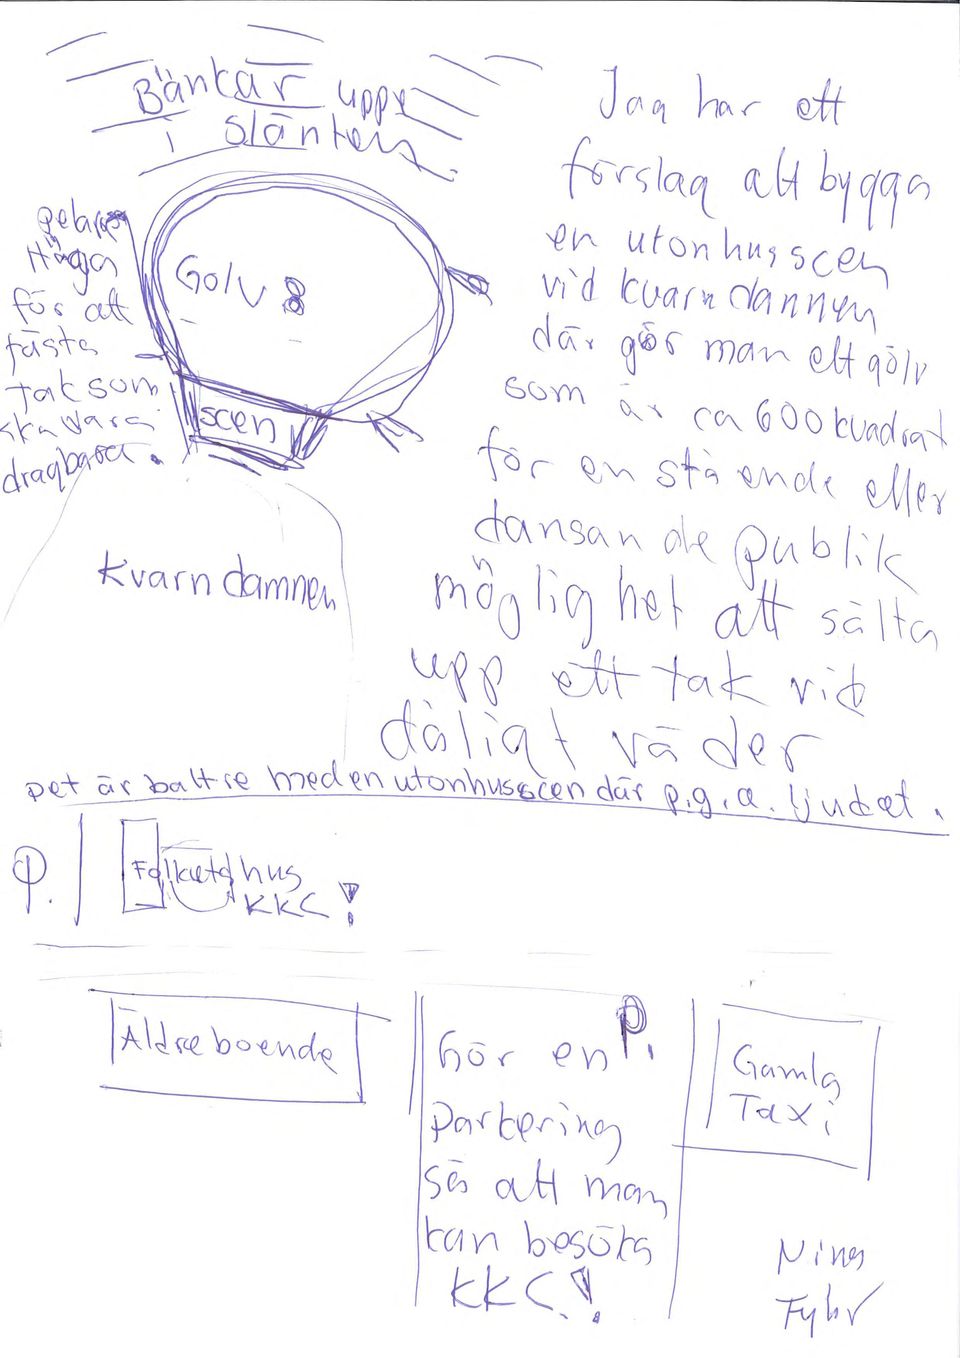 Bänkar uppe
i slänten
Jag har ett
förslag att bygga
en utonhusscen
vid kvarndannen
där gör man ett golv
som är ca 600 kvadrat
för en stående eller
dansande publik
möglighet att sätta
upp ett tak vid
dåligt väder
Golv
scen
Höga
för att
fästa
tak som
ska vara
dragbara.
Kvarndamnen
Det är bättre med en utonhusscen där p.g.a. ljudet.
P.
Folketshus
KKC!
Äldreboende
P.
Gör en
parkering
så att man
kan besöka
KKC!
Gamla
Taxi
Nina
Fyhr